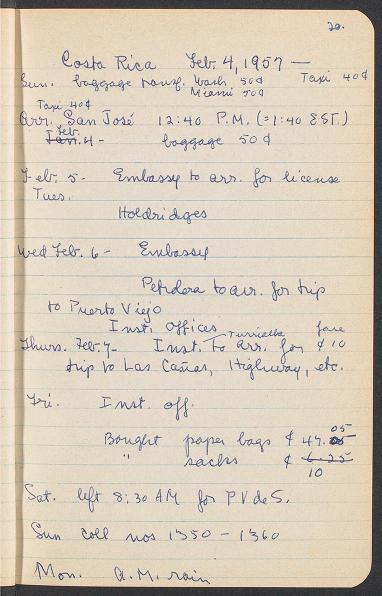 20.
Costa Rica Feb. 4, 1957 —
Sun. baggage transf. Wash 50¢ Taxi 40¢
Miami 50¢
Taxi 40¢
Arr. San José 12:40 P.M. (=1:40 EST.)
Jan. Feb. 4 - baggage 50¢
Feb. 5 - Embassy to arr. for license
Tues.
Holdridges
Wed Feb. 6 - Embassy
Petrolera to arr. for trip
to Puerto Viejo
Inst. Offices
Thurs. Feb. 7 - Inst. Turrialba To arr. for fare ¢10
trip to Las Cañas, Highway, etc.
Fri. Inst. off.
Bought paper bags ¢ 47.05
" sacks ¢ 6.25
10
Sat. left 8:30 AM for P V de S.
Sun coll nos 1350 - 1360
Mon. A.M. rain